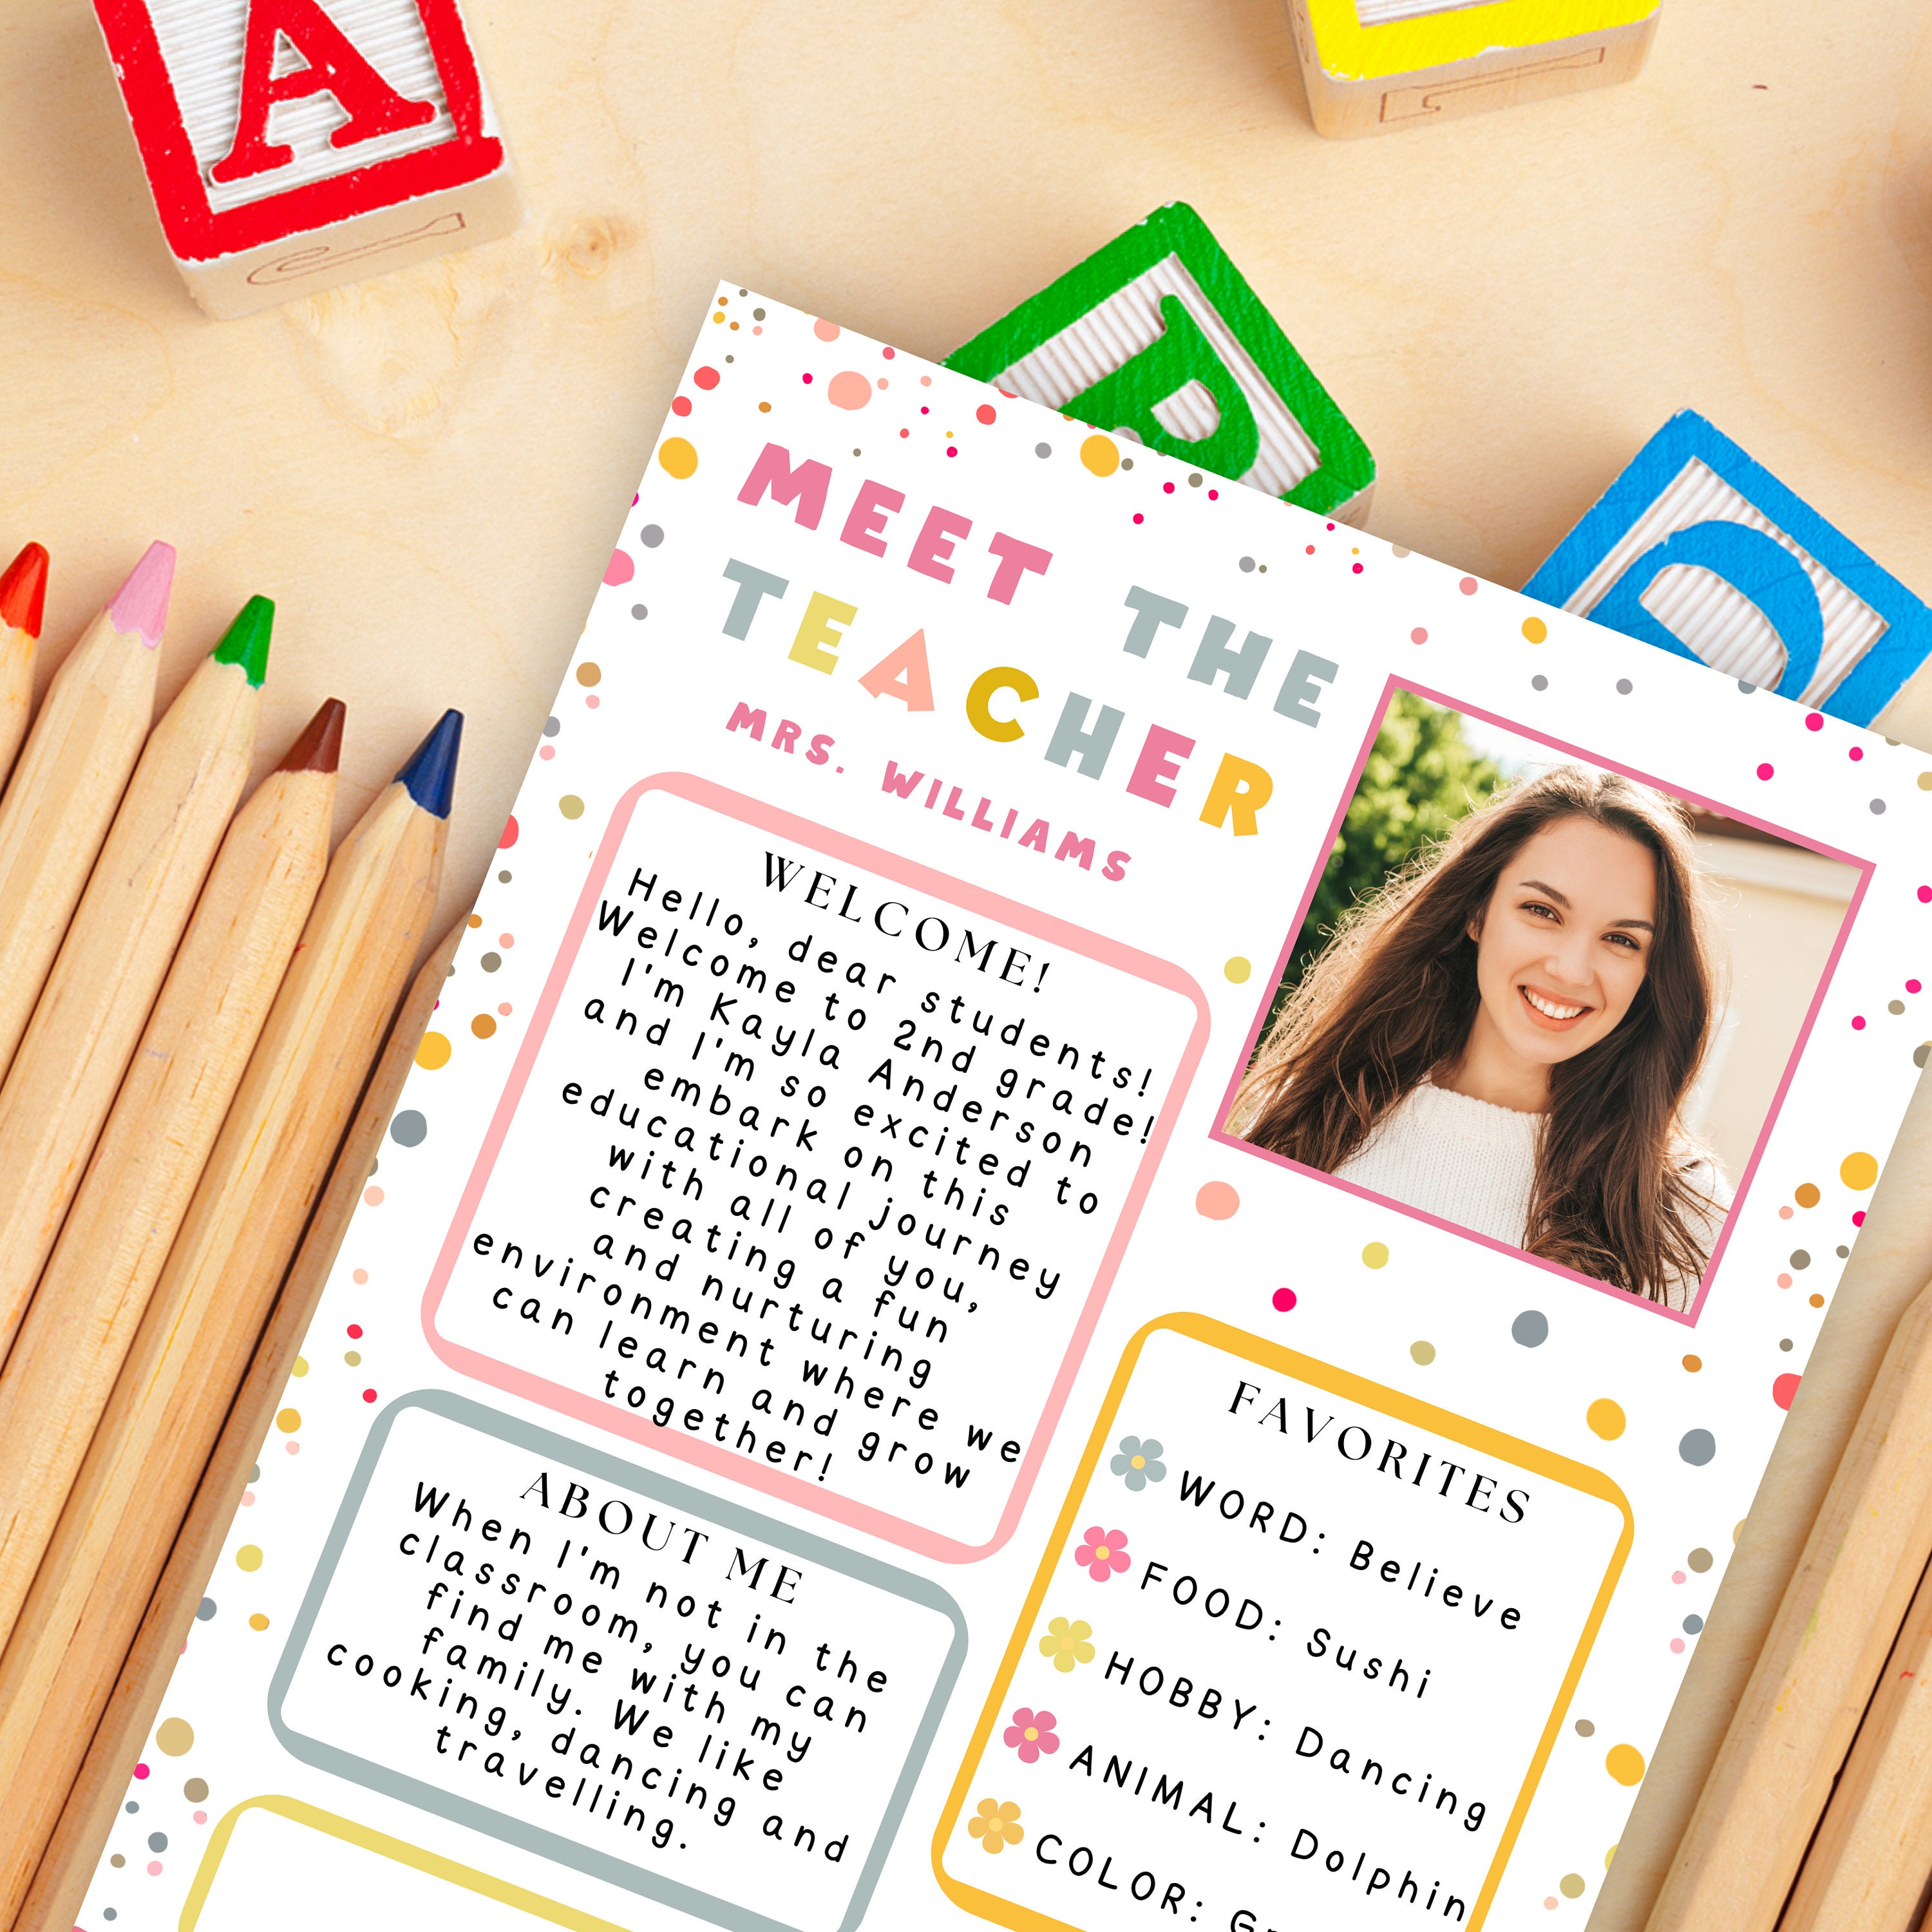 A
P
MEET THE
TEACHER
MRS. WILLIAMS
WELCOME!
Hello, dear students!
Welcome to 2nd grade!
I'm Kayla Anderson
and I'm so excited to
embark on this
educational journey
with all of you,
creating a fun
and nurturing
environment where we
can learn and grow
together!
ABOUT ME
When I'm not in the
classroom, you can
find me with my
family. We like
cooking, dancing and
travelling.
FAVORITES
WORD: Believe
FOOD: Sushi
HOBBY: Dancing
ANIMAL: Dolphin
COLOR: